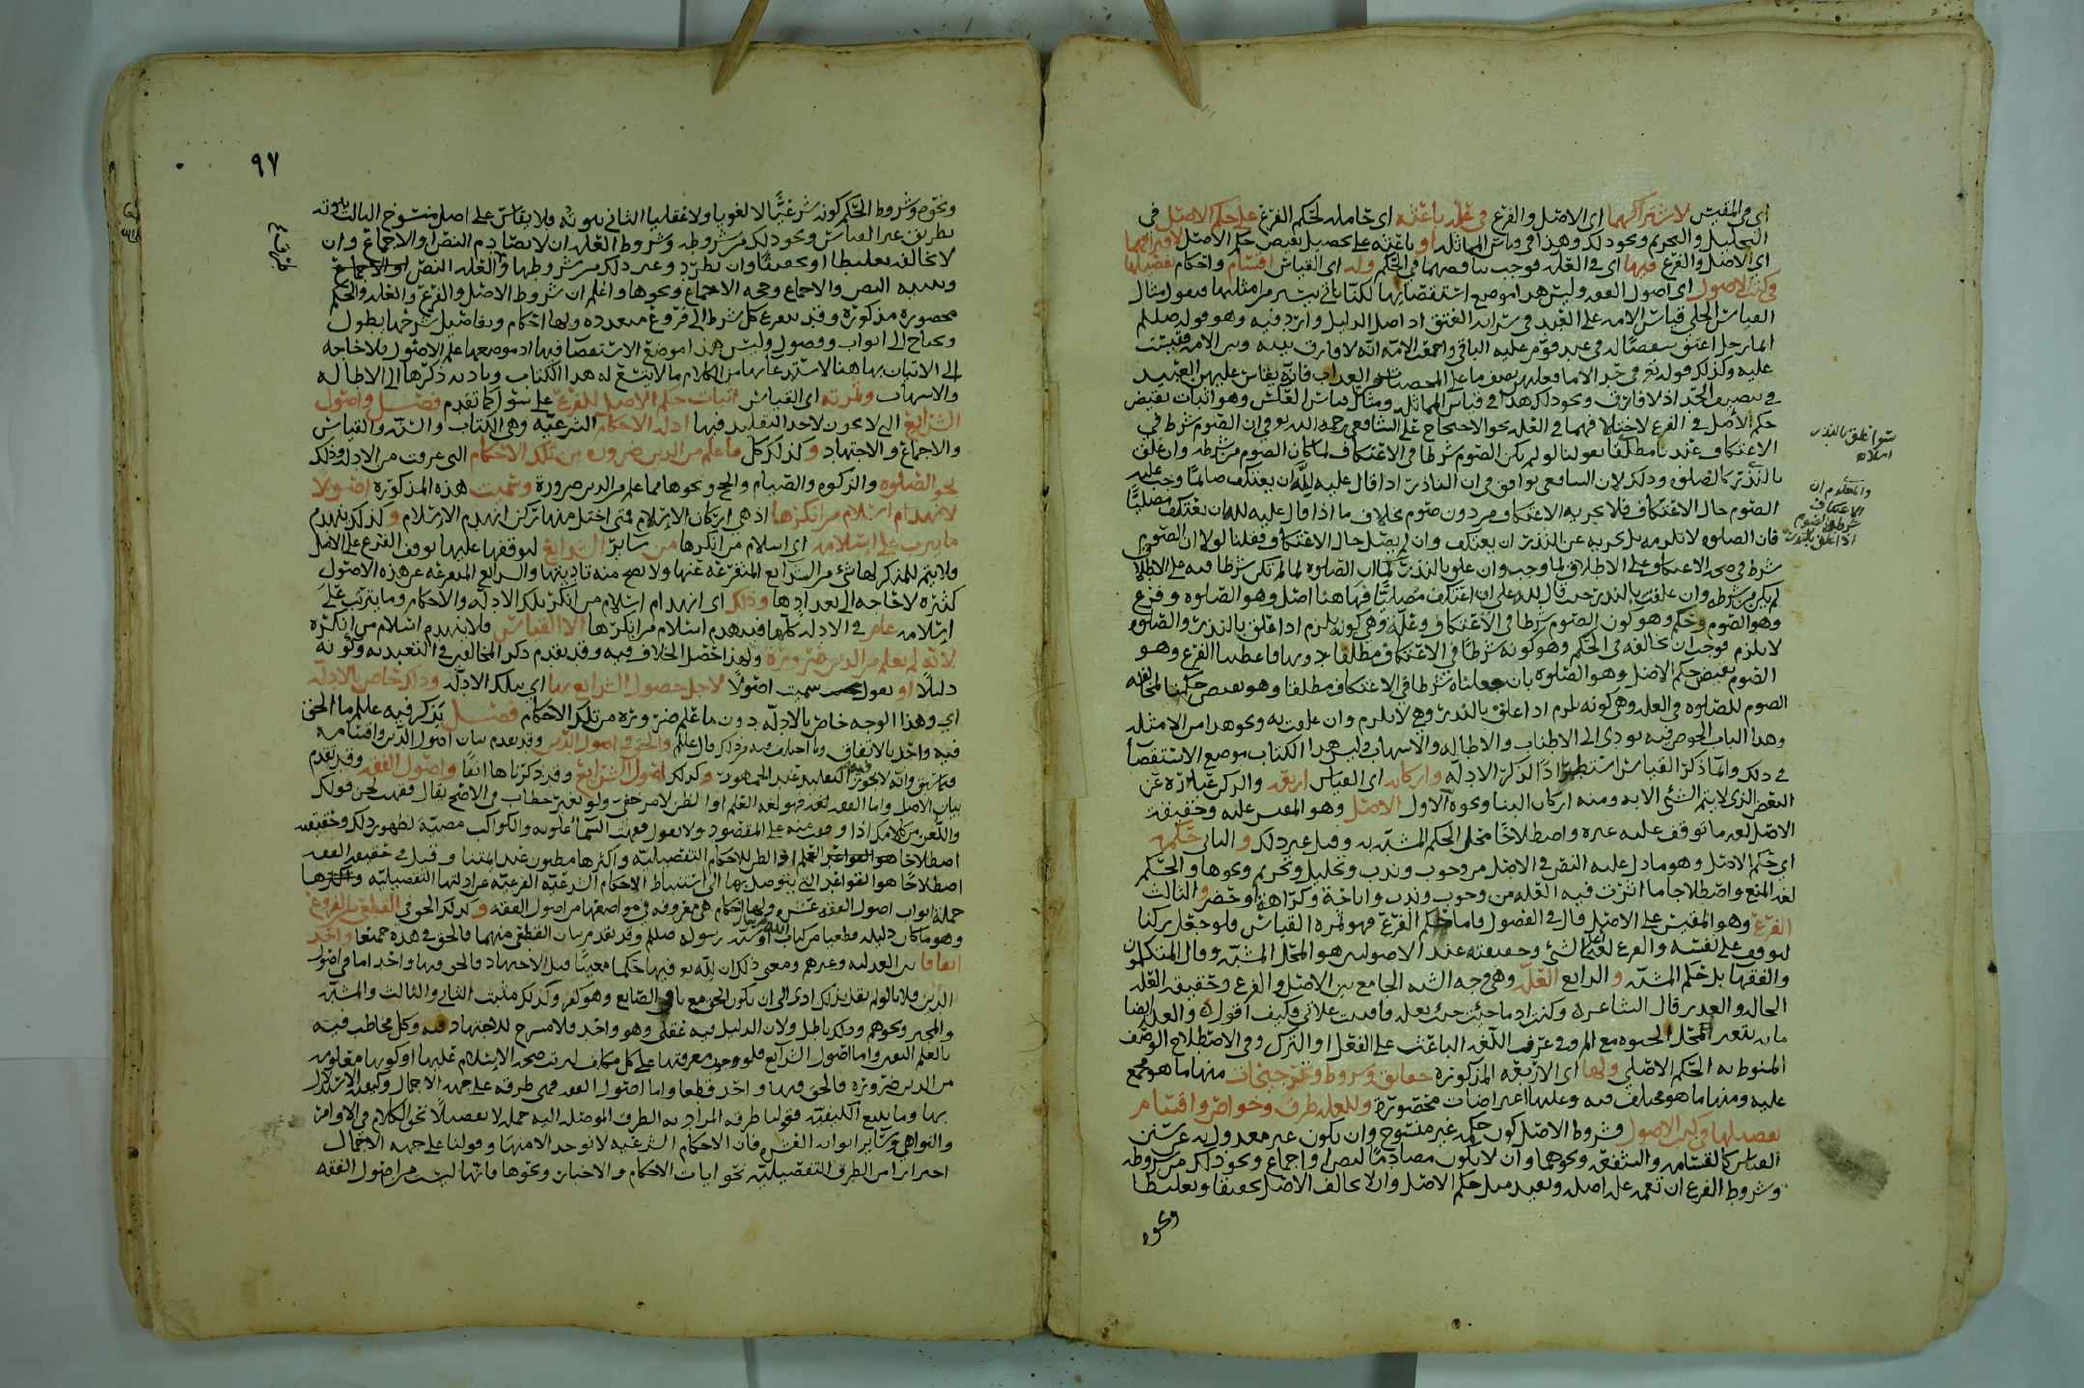 اي في المقيس لاشتراكهما اي الاصل والفرع في علة باعثة اي حاملة لحكم الفرع على حكم الاصل في
التحليل والتحريم ونحو ذلك وهذا في قياس المماثلة او باعثة على تحصيل نقيض حكم الاصل لافتراقهما
اي الاصل والفرع فيها اي في العلة فوجب تناقضهما في الحكم وله اي القياس اقسام واحكام تفصيلها
في كتب الاصول اي اصول الفقه وليس هذا موضع استقصائها لكنا نأتي بشيء من امثلتها فنقول مثال
القياس الجلي قياس الامة على العبد في سراية العتق اذ اصل الدليل وارد فيه وهو قوله صللم
ايما رجل اعتق شقصا له في عبد قوم عليه الباقي واجمعت الامة انه لا فارق بينه وبين الامة فقيست
عليه وكذلك قوله تع في حد الاما فعليهن نصف ما على المحصنات من العذاب فانه يقاس عليهن العبيد
في تنصيف الحد اذ لا فارق ونحو ذلك هذا في قياس المماثلة ومثال قياس العكس وهو اثبات نقيض
حكم الاصل في الفرع لاختلافهما في العلة نحو الاحتجاج على الشافعي رحمه الله تع في ان الصوم شرط في
الاعتكاف عندنا مطلقا بقولنا لو لم يكن الصوم شرطا في الاعتكاف لما كان الصوم من شرطه وان علق
بالنذر كالصلوة وذلك لان الشافعي يوافق في ان الناذر اذا قال عليه لله ان يعتكف صائما وجب عليه
الصوم حال الاعتكاف فلا يجزيه الاعتكاف من دون صوم بخلاف ما اذا قال عليه لله ان يعتكف مصليا
فان الصلوة لا تلزمه بل يجزيه عن النذر ان يعتكف وان لم يصل حال الاعتكاف فقلنا لولا ان الصوم
شرط في صحة الاعتكاف على الاطلاق لما وجب وان علق بالنذر كما ان الصلوة لما لم تكن شرطا فيه على الاطلاق
لم يكن من شرطه وان علقت بالنذر حيث قال لله علي ان اعتكف مصليا فهاهنا اصل وهو الصلوة وفرع
وهو الصوم وحكم وهو كون الصوم شرطا في الاعتكاف وعلة وهي كونه يلزم اذا علق بالنذر والصلوة
لا تلزم فوجب ان تخالفه في الحكم وهو كونه شرطا في الاعتكاف مطلقا دونها فاعطينا الفرع وهو
الصوم نقيض حكم الاصل وهو الصلوة بان جعلناه شرطا في الاعتكاف مطلقا وهو نقيض حكمها لمخالفة
الصوم للصلوة في العلة وهي كونه يلزم اذا علق بالنذر وهي لا تلزم وان علقت به ونحو هذا من الامثلة
وهذا الباب الخوض فيه يودي الى الاطناب والاطالة والاسهاب وليس هذا الكتاب موضع الاستقصا
في ذلك وانما ذكر القياس استطرادا لذكر الادلة واركانه اي القياس اربعة والركن عبارة عن
البعض الذي لا يتم الشي الا به ومنه اركان البنا ونحوه الاول الاصل وهو المقيس عليه وحقيقة
الاصل لغة ما توقف عليه غيره واصطلاحا محل الحكم المشبه به وقيل غير ذلك والثاني حكمه
اي حكم الاصل وهو ما دل عليه النص في الاصل من وجوب وندب وتحليل وتحريم ونحوها والحكم
لغة المنع واصطلاحا ما اثرت فيه العلة من وجوب وندب واباحة وكراهة او حضر والثالث
الفرع وهو المقيس على الاصل قال في الفصول فاما حكم الفرع فهو ثمرة القياس فلو جعل ركنا
لتوقف على نفسه والفرع لغة الشي وحقيقته عند الاصوليين هو المحل المشبه وقال المتكلمون
والفقها بل حكم المشبه والرابع العلة وهي وجه الشبه الجامع بين الاصل والفرع وحقيقة العلة
الحالة والعذر قال الشاعر وكنت اذا ما جئت جئت بعلة فافنيت علاتي وكيف اقول والعلة ايضا
ما به يتغير المحل الحيوة مع المرض وفي عرف اللغة الباعث على الفعل او الترك وفي الاصطلاح الوصف
المنوط به الحكم الاصلي ولها اي الاربعة المذكورة حقائق وشروط وتقسيمات منها ما هو مجمع
عليه ومنها ما هو مختلف فيه وعليها اعتراضات محصورة وللعلة طرق وخواص واقسام
تفصيلها في كتب الاصول فشروط الاصل كون حكمه غير منسوخ وان يكون غير معدول به عن سنن
القياس كالقسامة والشفعة ونحوهما وان لا يكون مصادما لنص او اجماع ونحو ذلك من شروطه
وشروط الفرع ان تعمه علة اصله وتفيد مثل حكم الاصل وان لا يخالف الاصل تخفيفا وتغليظا
ونحوه
سوا علق بالنذر
ام لا
والمعلوم ان
الاعتكاف
شرطه الصوم
اذا علق بالنذر
٩٧
ونحوه وشروط الحكم كونه شرعيا لا لغويا ولا عقليا الثاني ثبوته فلا يقاس على اصل منسوخ الثالث ثبوته
بطريق غير القياس ونحو ذلك من شروطه وشروط العلة ان لا تصادم النص او الاجماع وان
لا تخالف تغليظا او تخفيفا وان تطرد وغير ذلك من شروطها والعلة النص او الاجماع
وتنبيه النص والاجماع وحجة الاجماع ونحوها واعلم ان شروط الاصل والفرع والعلة والحكم
محصورة مذكورة وقد يتفرع كل شرط الى فروع متعددة ولها احكام وتفاصيل شرحها يطول
وتحتاج الى ابواب وفصول وليس هذا موضع الاستقصا فيها اذ موضعها علم الاصول فلا حاجة
الى الاتيان بها هنا لاستدعائها من الكلام ما لا يتسع له هذا الكتاب وتأدية ذكرها الى الاطالة
والاسهاب وثمرته اي القياس اثبات حكم الاصل للفرع على سوا كما تقدم فصل واصول
الشرائع التي لا يجوز لاحد التقليد فيها ادلة الاحكام الشرعية وهي الكتاب والسنة والقياس
والاجماع والاجتهاد وكذلك كل ما علم من الدين ضرورة من تلك الاحكام التي عرفت من الادلة وذلك
نحو الصلوة والزكوة والصيام والحج ونحوها مما علم من الدين ضرورة وسميت هذه المذكورة اصولا
لانهدام اسلام من انكرها اذ هي اركان الاسلام فمتى اختل منها ركن انهدم الاسلام وكذلك ينهدم
ما يترتب على اسلامه اي اسلام من انكرها من سائر الشرائع لتوقفها عليها توقف الفرع على الاصل
فلا يتم للمنكر لها شي من الشرائع المتفرعة عنها ولا يصح منه تاديتها والشرائع المتفرعة عن هذه الاصول
كثيرة لا حاجة الى تعدادها وذلك اي انهدام اسلام من انكر تلك الادلة والاحكام وما يترتب على
اسلامه عام في الادلة كلها فينهدم اسلام من انكرها الا القياس فلا ينهدم اسلام من انكره
لانه لم يعلم من الدين ضرورة ولهذا حصل الخلاف فيه وقد تقدم ذكر المخالفين في التعبد به وكونه
دليلا او نقول سميت اصولا لاجل حصول الشرائع بها اي بتلك الادلة وذلك خاص بالادلة
اي وهذا الوجه خاص بالادلة دون ما علم ضرورة من تلك الاحكام فصل نذكر فيه علم ما الحق
فيه واحد بالاتفاق وما اختلف فيه من ذلك قال عللم والحق في اصول الدين وقد تقدم بيان اصول الدين واقسامه
فيما سبق وانه لا يجوز فيه التقليد عند الجمهور وكذلك اصول الشرائع وقد ذكرناها انفا واصول الفقه وقد تقدم
بيان الاصل واما الفقه لغة فهو لغة العلم او الظن لامر خفي ولو بغير خطاب في الاصح يقال فقهت لحن قولك
اصطلاحا هو القواعد التي يتوصل بها الى استنباط الاحكام الشرعية الفرعية عن ادلتها التفصيلية
جملة ابواب اصول الفقه عشرة ولها احكام هي معروفة في مواضعها من اصول الفقه وكذلك الحق في القطعي من الفروع
وهو ما كان دليله قطعيا من كتاب الله او سنة رسوله صللم وقد تقدم بيان القطعي منهما فالحق في هذه جميعا واحد
اتفاقا بين العدلية وغيرهم ومعنى ذلك ان لله تع فيها حكما معينا قبل الاجتهاد فالحق فيها واحد اما في اصول
الدين فلانا لو لم نقل بذلك ادى الى ان يكون الحق مع نافي الصانع وهو كفر وكذلك مثبت الثاني والثالث والمشبه
والمجبر ونحوهم وذلك باطل ولان الدليل فيه عقلي وهو واحد فلا مسرح للاجتهاد فيه وكل مخاطب فيه
بالعلم اليقين واما اصول الشرائع فلوجوب معرفتها على كل مكلف لترتب صحة الاسلام عليها او كونها معلومة
من الدين ضرورة فالحق فيها واحد قطعا واما اصول الفقه فهي طرقه على جهة الاجمال وكيفية الاستدلال
بها وما يتبع الكيفية فقولنا طرقه المراد به الطرق الموصلة اليه جملة لا تفصيلا نحو الكلام في الاوامر
والنواهي وسائر ابواب الفن فان الاحكام الشرعية لا توخذ الا منها وقولنا على جهة الاجمال
احترازا من الطرق التفصيلية نحو ايات الاحكام والاخبار ونحوها فانها ليست من اصول الفقه